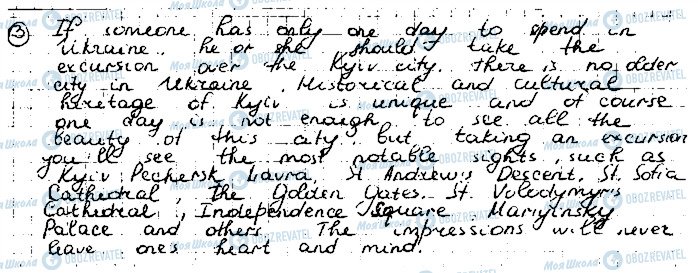 ③ If someone has only one day to spend in
Ukraine, he or she should take the
excursion over the Kyiv city. There is no older
city in Ukraine. Historical and cultural
heritage of Kyiv is unique and of course
one day is not enough to see all the
beauty of this city, but taking an excursion
you'll see the most notable sights, such as
Kyiv Pechersk Lavra, St Andrew's Descent, St. Sofia
Cathedral, The Golden Gates, St. Volodymyr's
Cathedral, Independence Square, Mariyinsky
Palace and others. The impressions will never
leave ones heart and mind.